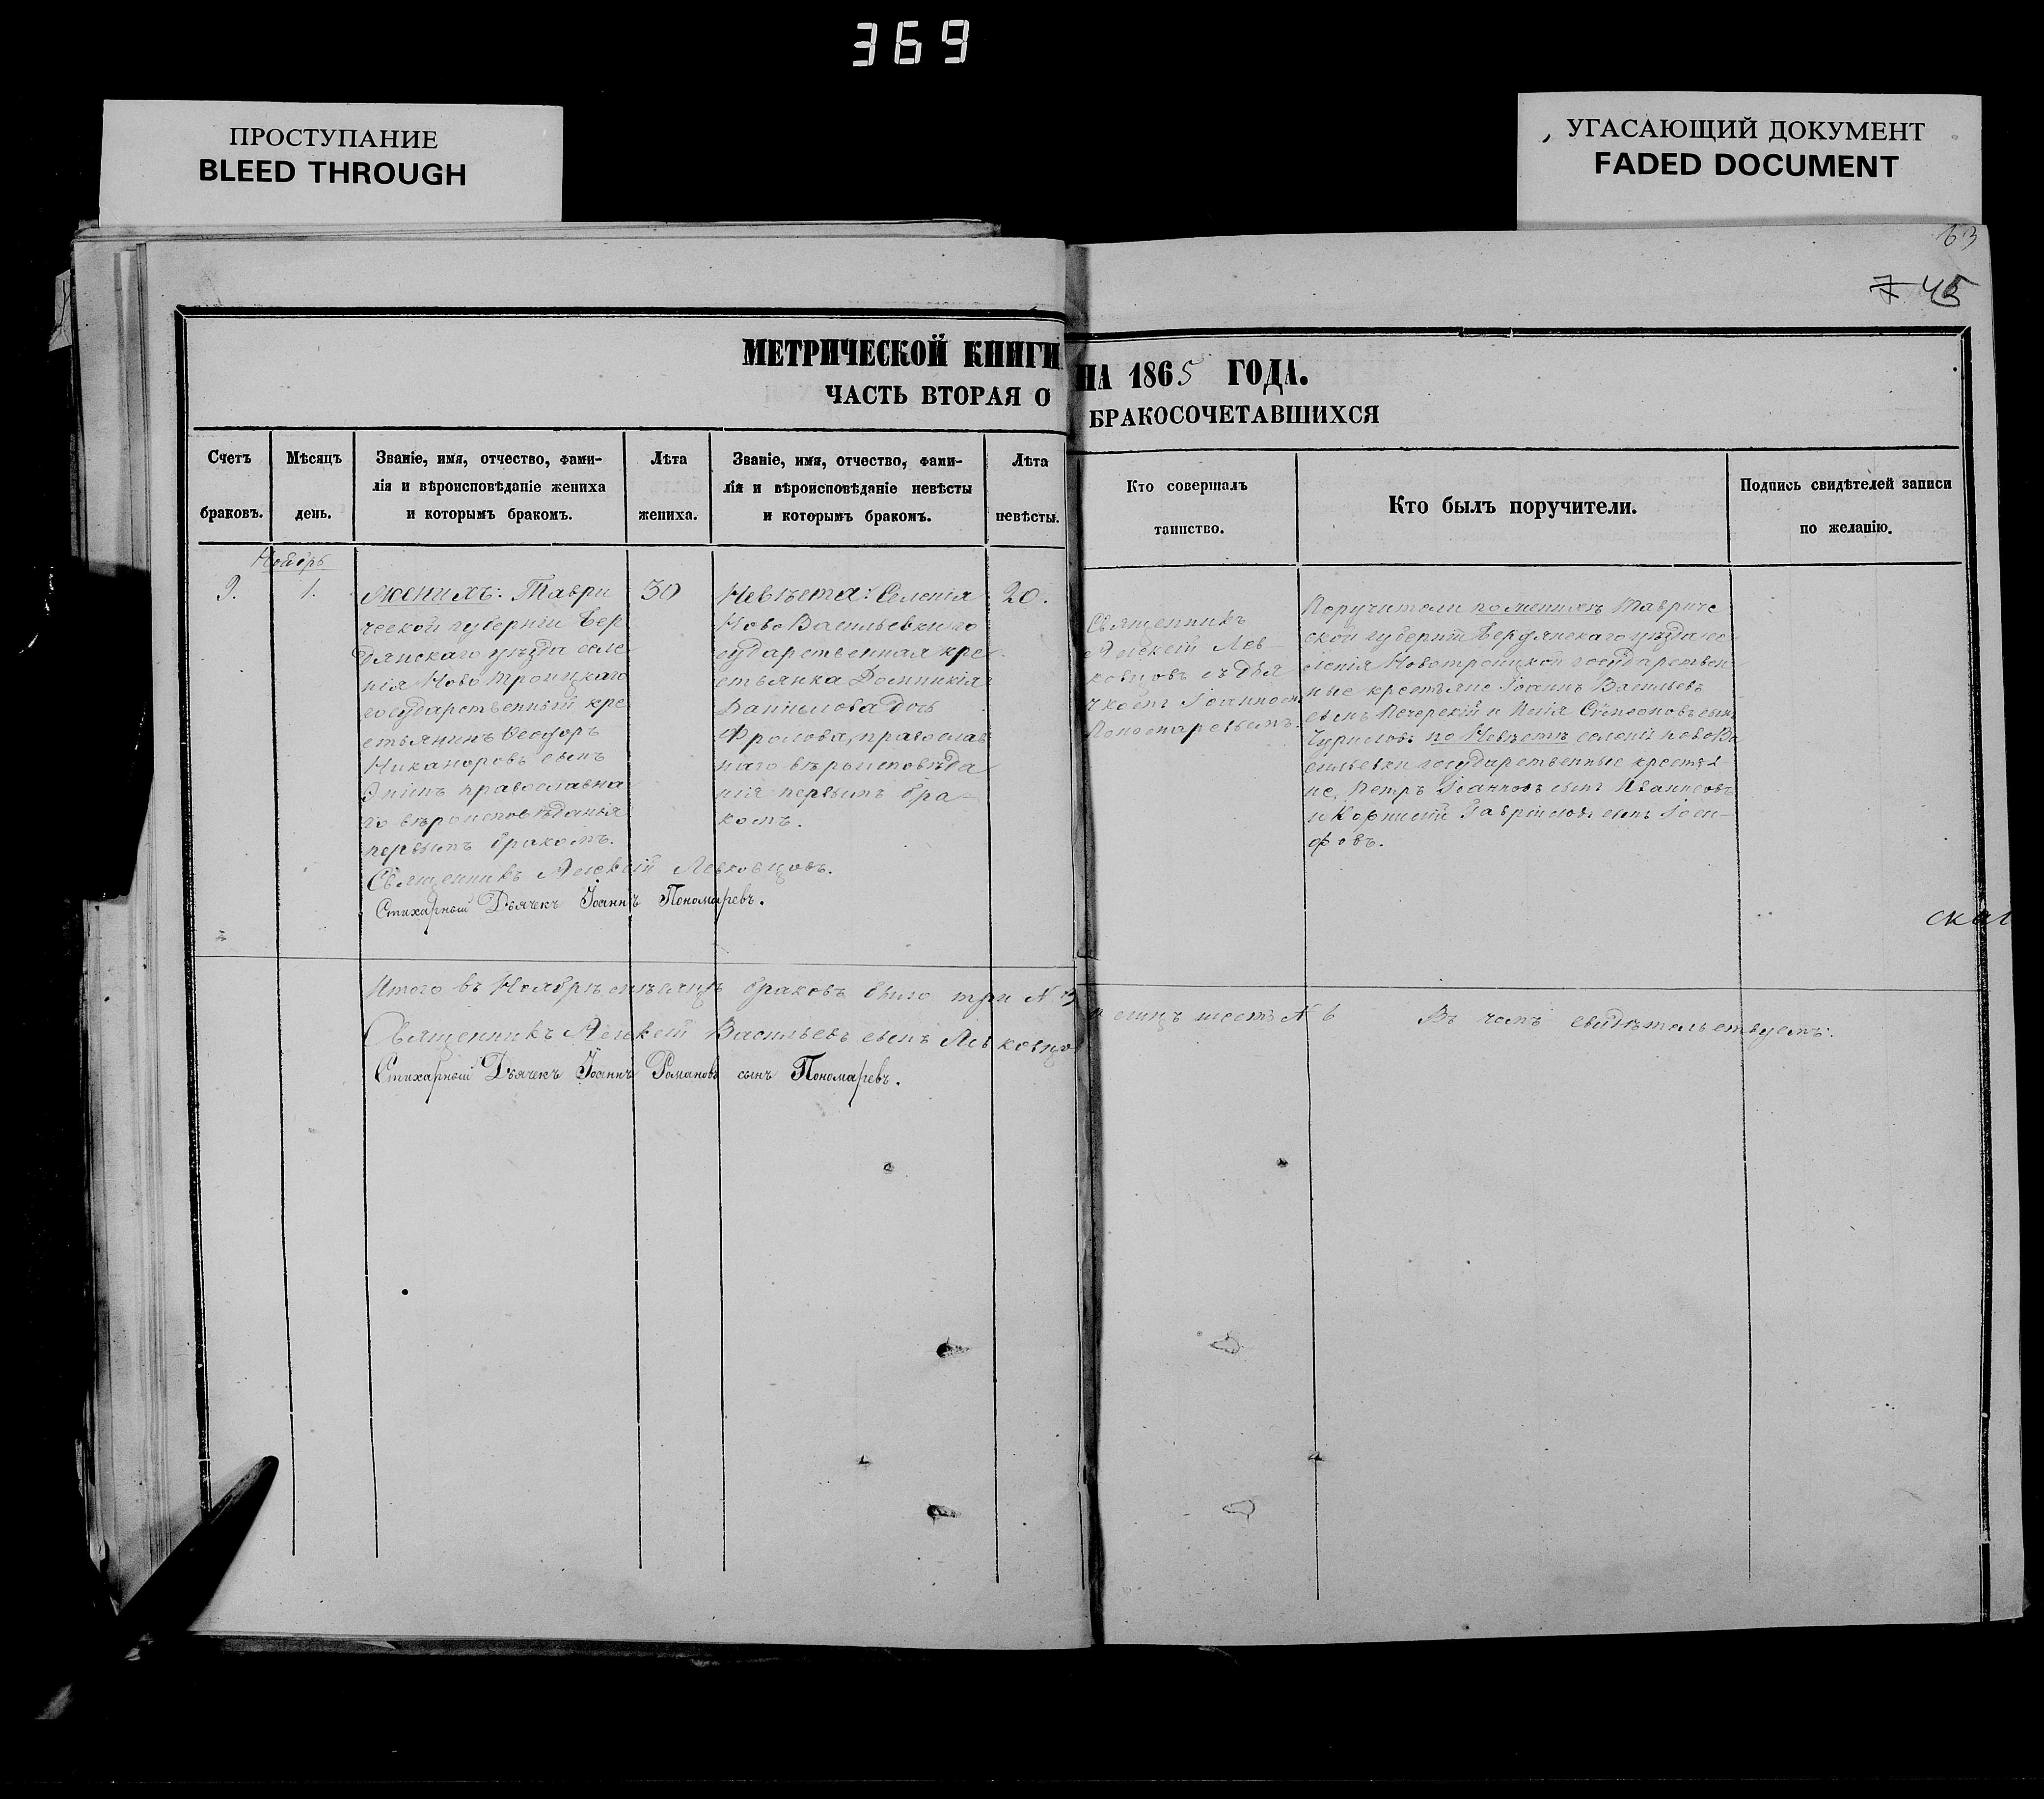 369
ПРОСТУПАНИЕ
BLEED THROUGH
УГАСАЮЩИЙ ДОКУМЕНТ
FADED DOCUMENT
63
7 45
МЕТРИЧЕСКОЙ КНИГИ НА 1865 ГОДА.
ЧАСТЬ ВТОРАЯ О БРАКОСОЧЕТАВШИХСЯ
Счетъ браковъ.
Мѣсяцъ день.
Званіе, имя, отчество, фами-
лія и вѣроисповѣданіе жениха
и которымъ бракомъ.
Лѣта жениха.
Званіе, имя, отчество, фами-
лія и вѣроисповѣданіе невѣсты
и которымъ бракомъ.
Лѣта невѣсты.
Кто совершалъ
таинство.
Кто былъ поручители.
Подпись свидѣтелей записи
по желанію.
Ноябрь
9.
1.
Женихъ: Таври
ческой губерніи Бер
дянскаго уѣзда селе
нія Ново Троицкаго
государственный кре
стьянинъ Ѳеодоръ
Никаноровъ сынъ
православна
го вѣроисповѣданія
первымъ бракомъ.
30
Невѣста: Селенія
Ново Васильевки го
сударственная кре
стьянка Домникія
Данилова дочь
Фролова, православ
наго вѣроисповѣда
нія первымъ бра-
комъ.
20.
Священникъ
Алексій Лев
ковцовъ съ дья
чкомъ Іоанномъ
Пономаревымъ.
Поручители по женихѣ Тавриче
ской губерніи Бердянскаго уѣзда се
ленія Новотроицкой государствен
ные крестьяне Іоаннъ Васильевъ
сынъ Печерскій и Симеоновъ сынъ
Чуриловъ по Невѣстѣ селенія ново Ва
сильевки государственные крестья
не, Петръ Іоанновъ сынъ Иванновъ
и Корнилій Гавріиловъ сынъ Іоси-
фовъ.
Священникъ Алексій Левковцовъ.
Стихарный Дьячекъ Іоаннъ Пономаревъ.
скаг
Итого въ Ноябрѣ мѣсяцѣ браковъ было три N 3
и лицъ шесть N 6 Въ чемъ свидѣтельствуемъ:
Священникъ Алексій Васильевъ сынъ Левковцовъ
Стихарный Дьячекъ Іоаннъ Романовъ сынъ Пономаревъ.